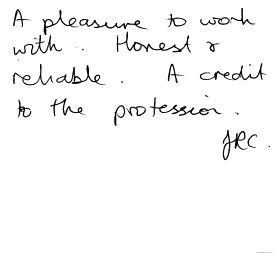 A pleasure to work
with. Honest &
reliable. A credit
to the profession.
JRC.